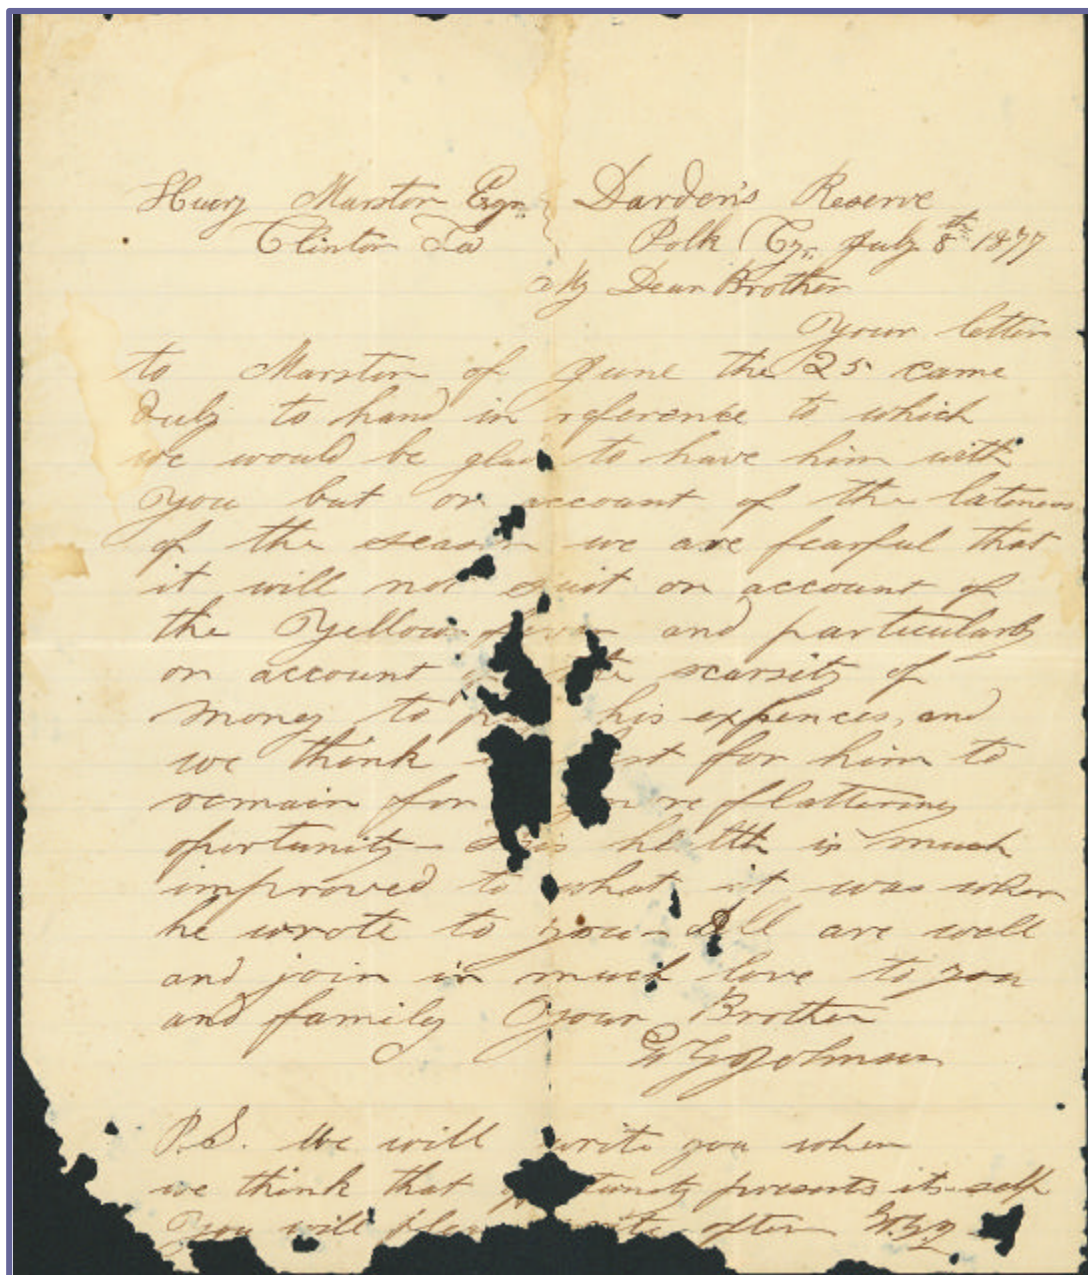 Henry Marston Esqr. Darden's Reserve
Clinton La Polk Cy. July 8th 1877
My Dear Brother
Your letter
to Marston of June the 25 came
duly to hand in reference to which
we would be glad to have him with
you but on account of the lateness
of the season we are fearful that
it will not suit on account of
the Yellow fever and particularly
on account the scarsity of
money to pay his expences, and
we think for him to
remain for more flattering
oportunity - His health is much
improved to what it was when
he wrote to you - All are well
and join in much love to you
and family Your Brother

P.S. We will write you when
we think that presents its self
you will often